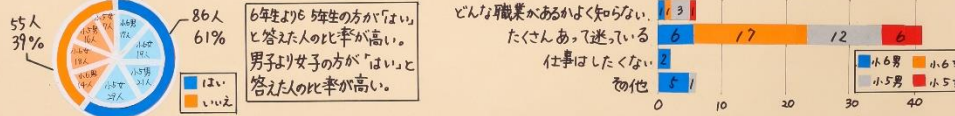 55人
39%
86人
61%
小6男
小6女
19人
小5男
小5女
29人
小6男
14人
小6女
18人
小5男
16人
小5女
はい
いいえ
6年生よりも5年生の方が「はい」
と答えた人の比率が高い。
男子より女子の方が「はい」と
答えた人の比率が高い。
どんな職業があるかよく知らない
1 1 3 1
たくさんあって迷っている
6 17 12 6
仕事はしたくない
2
その他
5 1
0 10 20 30 40
小6男
小5男